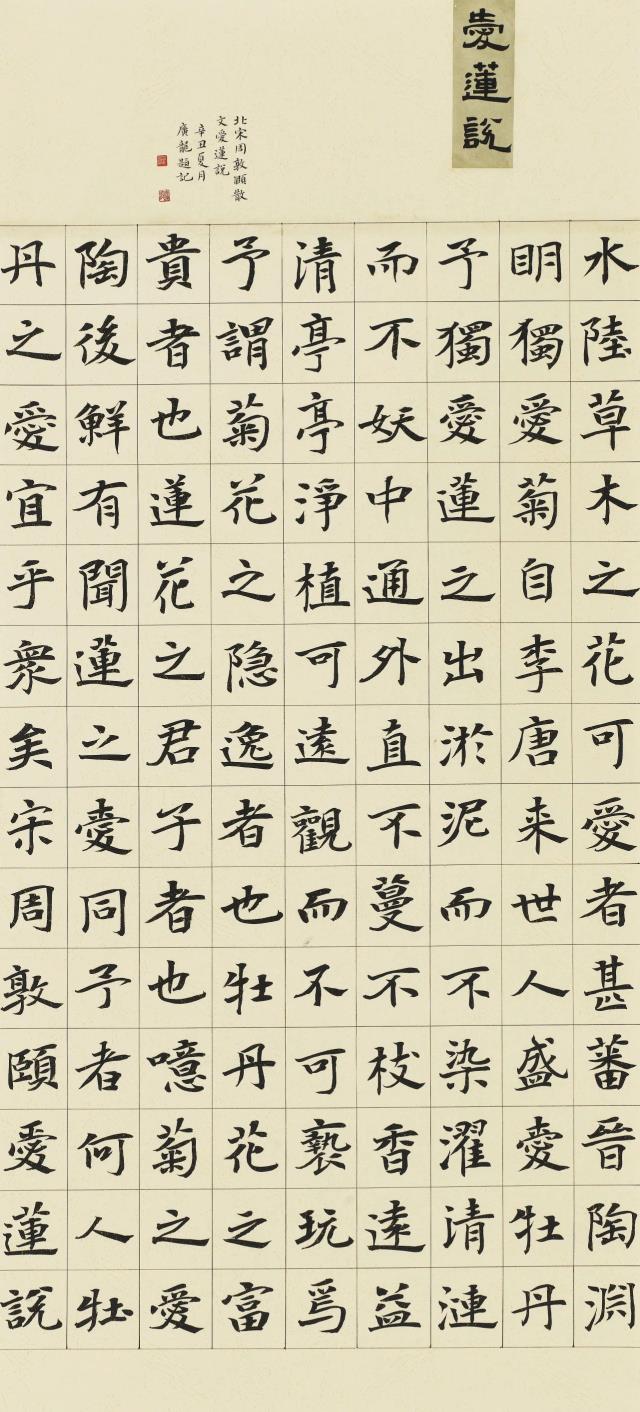 愛蓮說
北宋周敦頤散
文愛蓮說
辛丑夏月
廣龍題記
水陸草木之花可愛者甚蕃晉陶淵
眀獨愛菊自李唐来世人盛愛牡丹
予獨愛蓮之出淤泥而不染濯清漣
而不妖中通外直不蔓不枝香遠益
清亭亭淨植可遠觀而不可褻玩焉
予謂菊花之隐逸者也牡丹花之富
貴者也蓮花之君子者也噫菊之愛
陶後鮮有聞蓮之愛同予者何人牡
丹之愛宜乎衆矣宋周敦頤愛蓮說